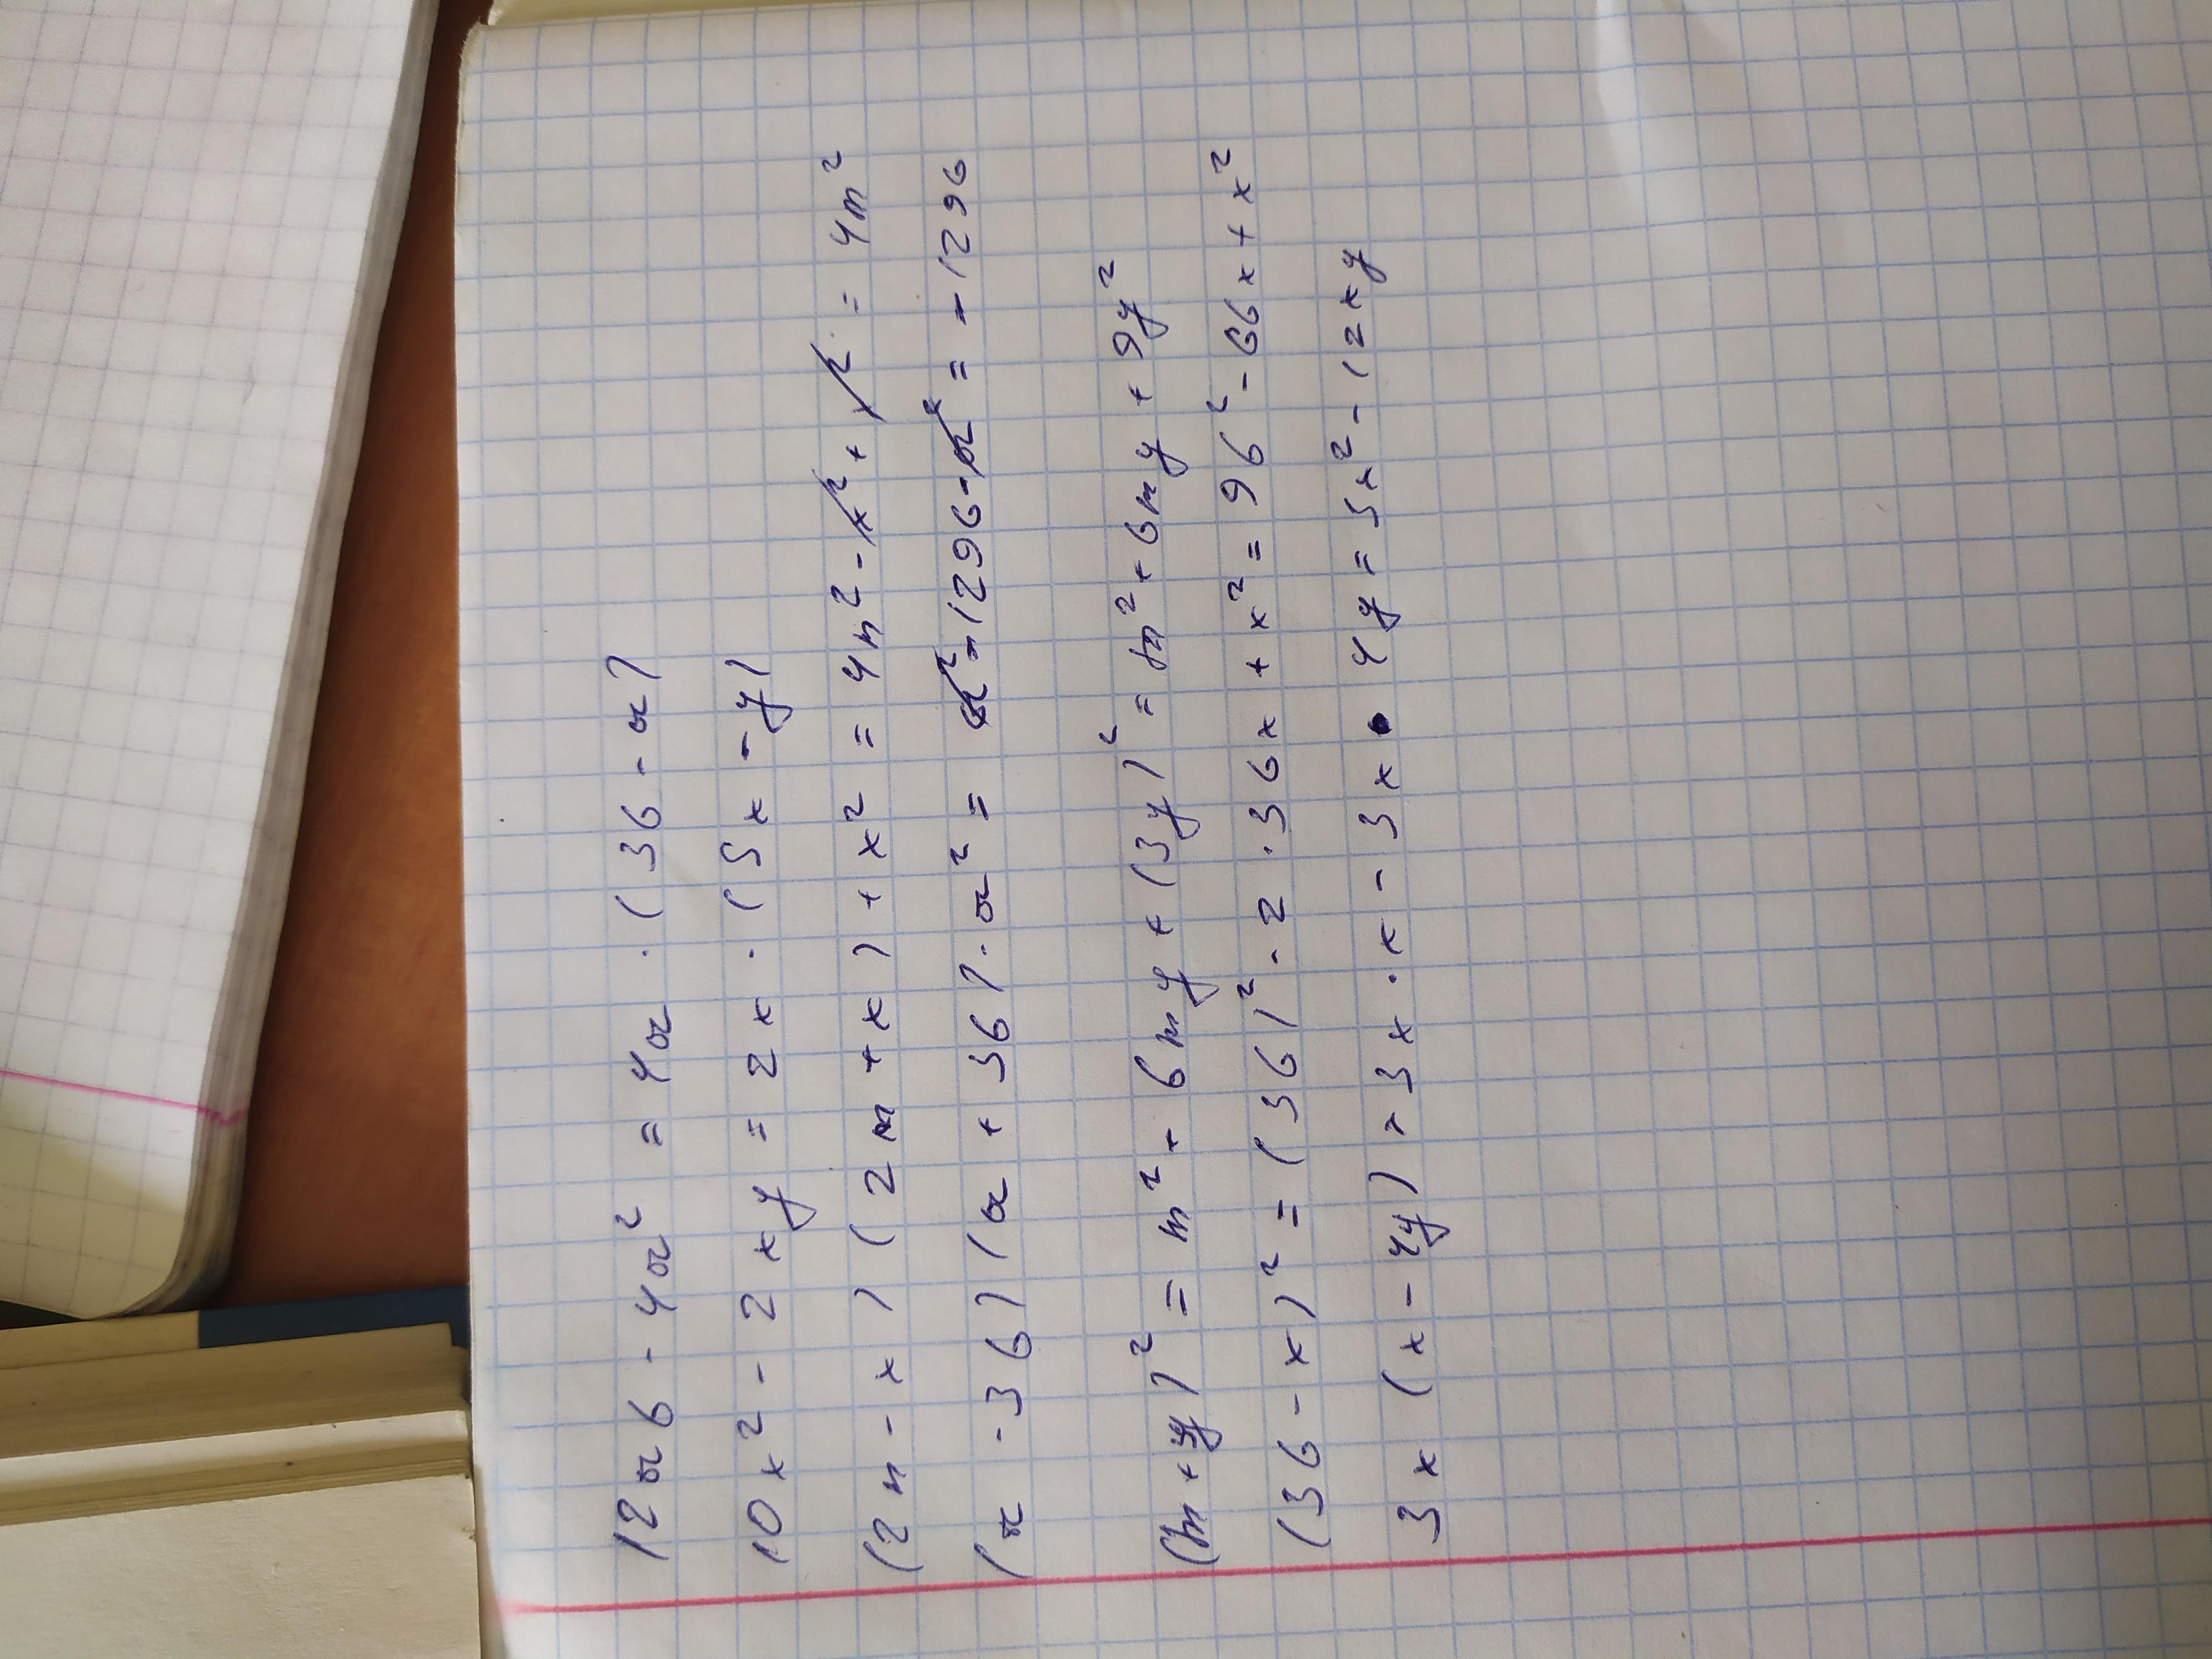 12ab - 4a² = 4a · (3b - a)
10x² - 2xy = 2x · (5x - y)
(2m - x) (2m + x) + x² = 4m² - x² + x² = 4m²
(a - 36) (a + 36) - a² = a² - 1296 - a² = - 1296
(m + y)² = m² + 6my + (3y)² = m² + 6my + 9y²
(3b - x)² = (3b)² - 2 · 3bx + x² = 9b² - 6bx + x²
3x (x - 4y) = 3x · x - 3x · 4y = 3x² - 12xy